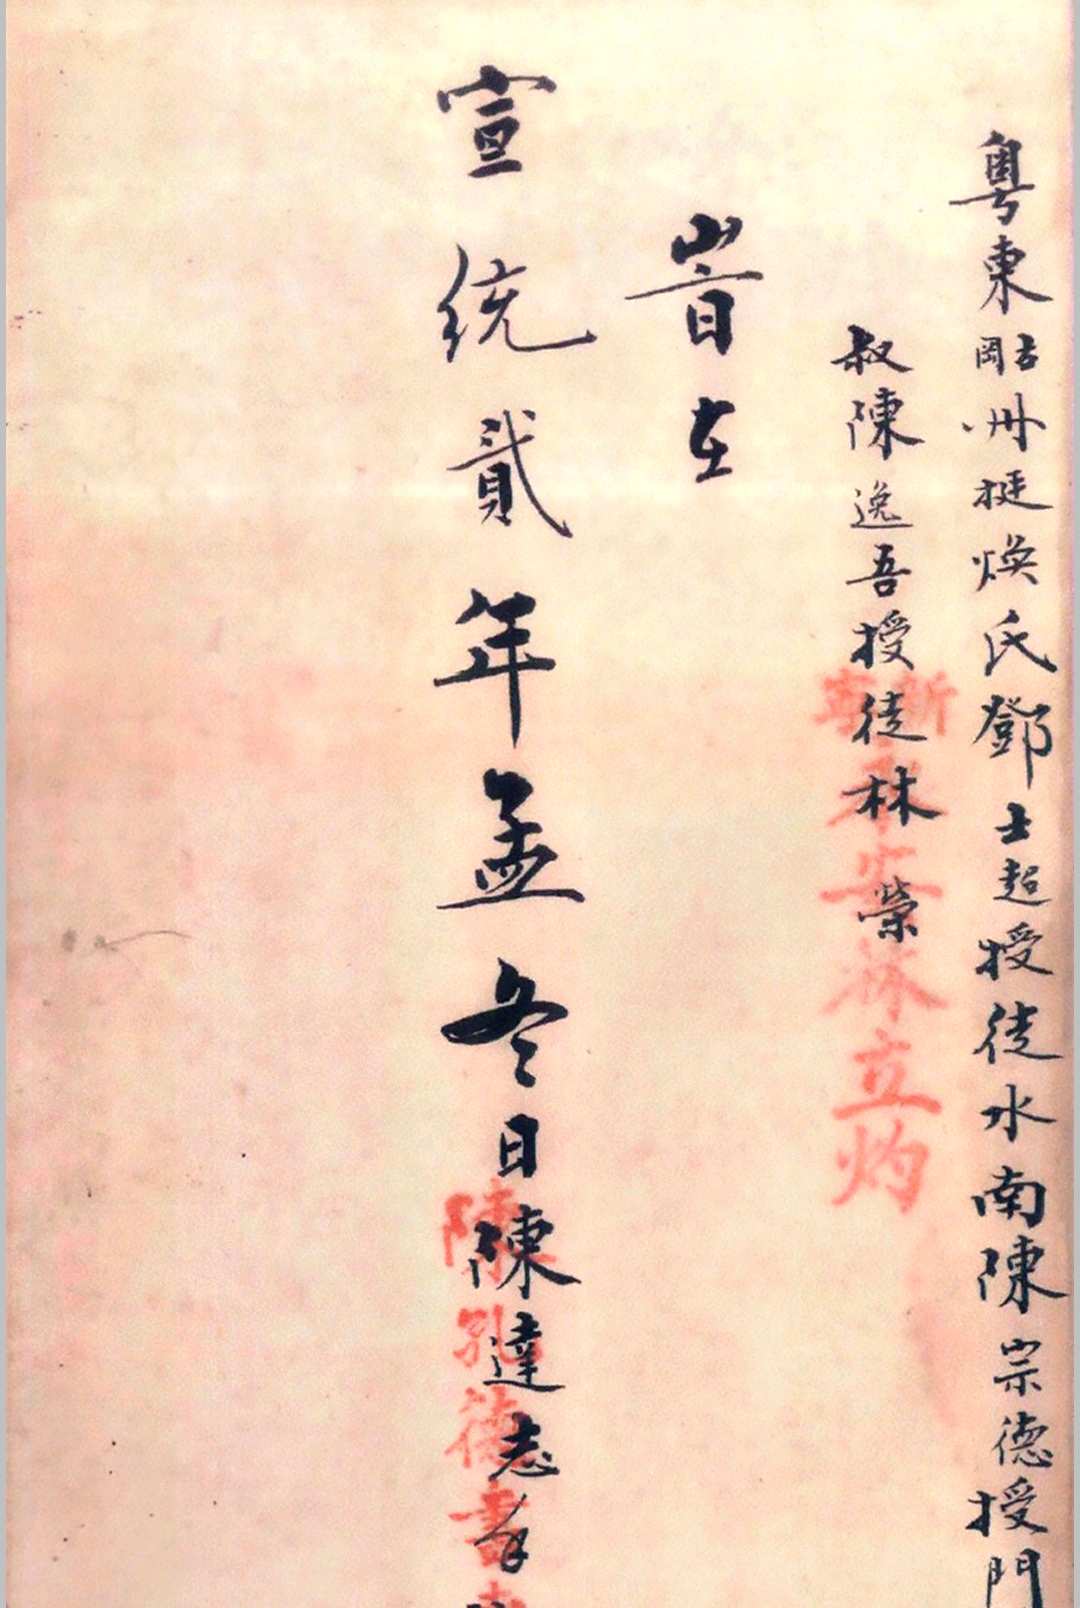 粵東岡州挺煥氏鄧士超授徒水南陳宗德授門
叔陳逸吾授徒林榮
旹在
宣統貳年孟冬日陳達志
林立灼
陳孔德書